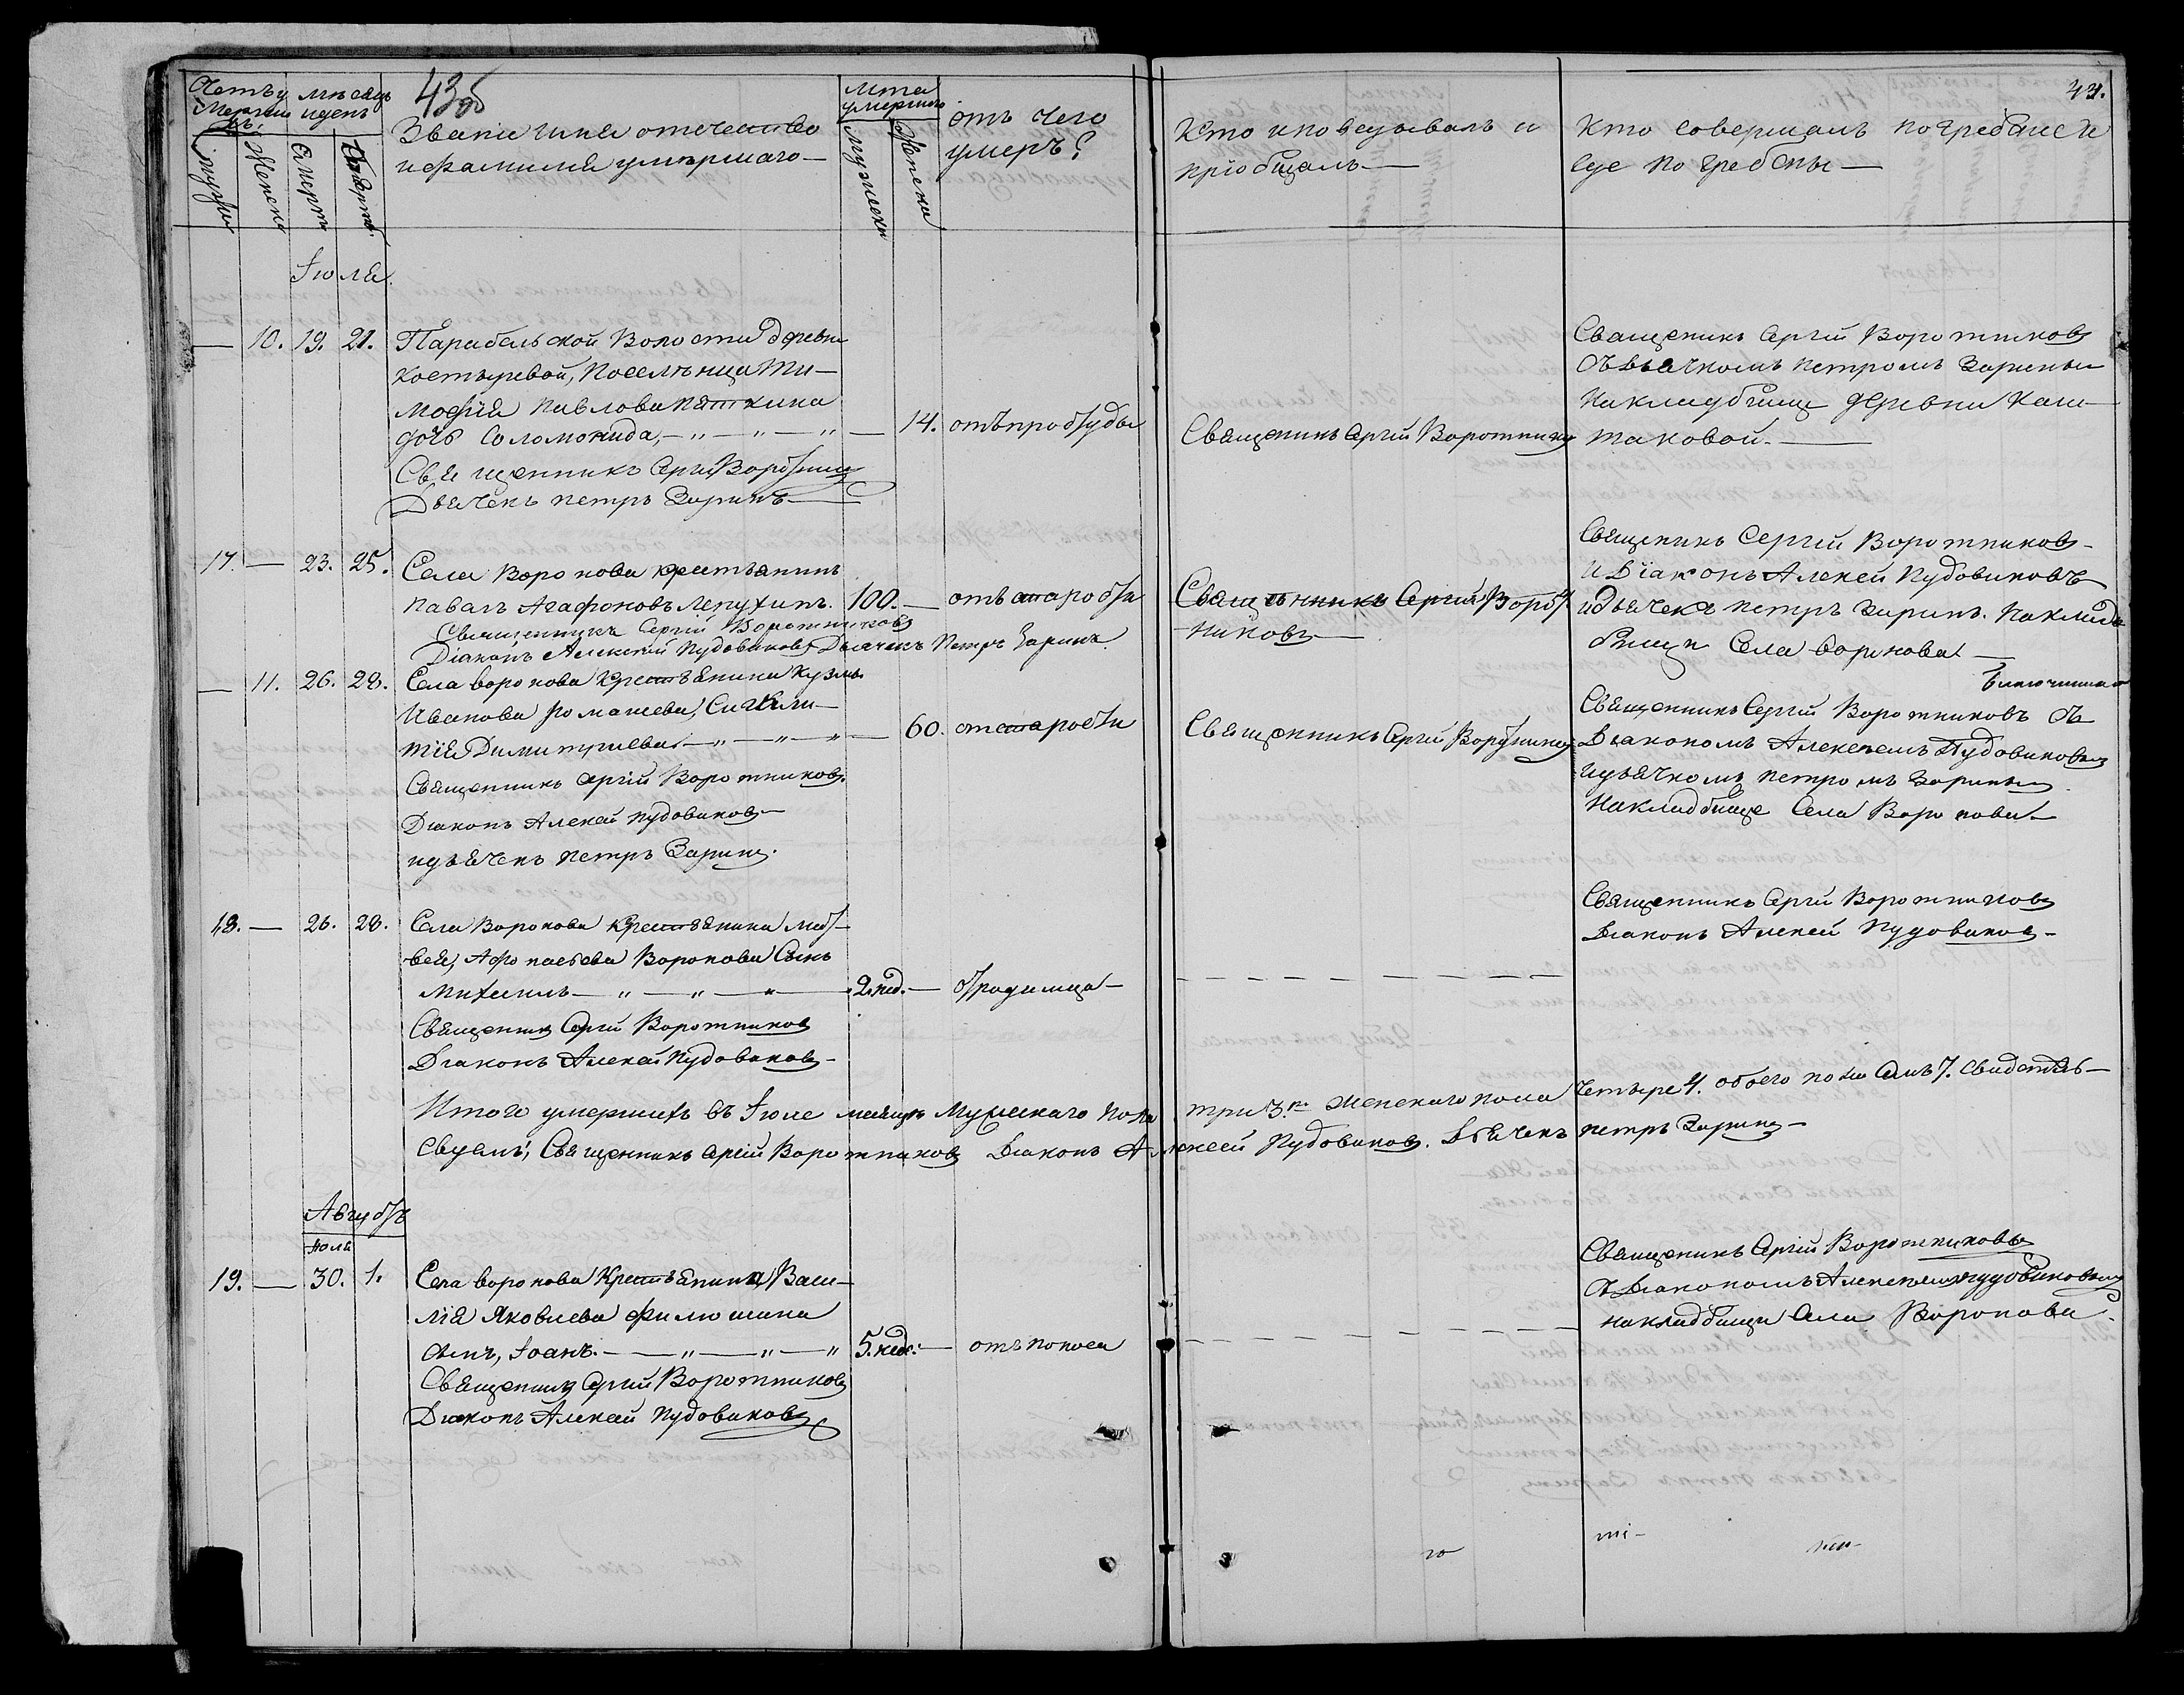 Счетъ у
мерши
хъ.
мѣсяцъ
и день
43об
Лѣта
умершаго
отъ чего
умеръ?
Званіе имя отечество
и фамилия умершаго —
Мужеска
Женска
Смерти
Мужеск
Женска
Кто исповедывалъ и
пріобщалъ —
Кто совершалъ погребеніе и
где погребены —
44.
Іюля.
— 10. 19. 21.
Парабельской Волости деревни
Костыревой, Поселенца Ти-
мофѣя Павлова Пяткина
дочь Соломонида, — „ — „ — „ — 14. отъ простуды
Священникъ Сергій Воротников
Дьячекъ Петръ Заринъ —
Священикъ Сергій Воротников
Священикъ Сергій Воротников
Съ дьячкомъ Петромъ Заринымъ
На кладбище деревни Каш-
таковой. —
17. — 23. 25.
Села Воронова крестьянинъ
Павалъ Агафоновъ Лепухинъ. 100. — отъ старости
Священникъ Сергій Воротниковъ
Діаконъ Алексѣй Пудовиковъ Дьячекъ Петръ Заринъ.
Священникъ Сергій Ворот
никовъ —
Священикъ Сергій Воротников —
и Діаконъ Алексей Пудовиковъ
и дьячекъ Петръ Заринъ. На кладъ
бище Села Воронова —
— 11. 26. 28.
Села Воронова Крестьянина Кузмы
Иванова Ромашева, Сигкли-
тія Димитриева — „ — „ — „ — 60. от старости
Священникъ Сергій Воротников.
Діаконъ Алексей Пудовиков —
и дьячекъ Петръ Зарин.
Священникъ Сергій Воротников
Священникъ Сергій Воротниковъ съ
Діакономъ Алексеемъ Пудовиковым
и дьячкомъ Петромъ Зариным
На кладбище Села Воронова —
18. — 26. 28.
Села Воронова Крестьянина Мат-
вея, Афонасьева Воронова Сынъ
Михаилъ — „ — „ — „ — 2. нед. — отъ родимца —
Священник Сергій Воротников
Діаконъ Алексей Пудовиков —
Священникъ Сергій Воротников
Діаконъ Алексей Пудовиков —
Итого умершихъ въ Іюле месяце Мужескаго пола три 3. Женскаго пола четыре 4. обоего пола Семь 7. Свидетель-
Свуемъ, Священникъ Сергій Воротников Діаконъ Алексеей Пудовиков. Дьячекъ Петръ Зарин —
Августъ
Іюля
19. — 30. 1.
Села Воронова Крестьянина, Васи-
лія Яковлева Филюшина
сынъ, Іоанъ. — „ — „ — „ 5. нед. — отъ поноса
Священник Сергій Воротников
Діаконъ Алексей Пудовиков
Священикъ Сергій Воротниковъ
Съ Діакономъ Алексеем Пудовиковым
на кладбище Села Воронова.